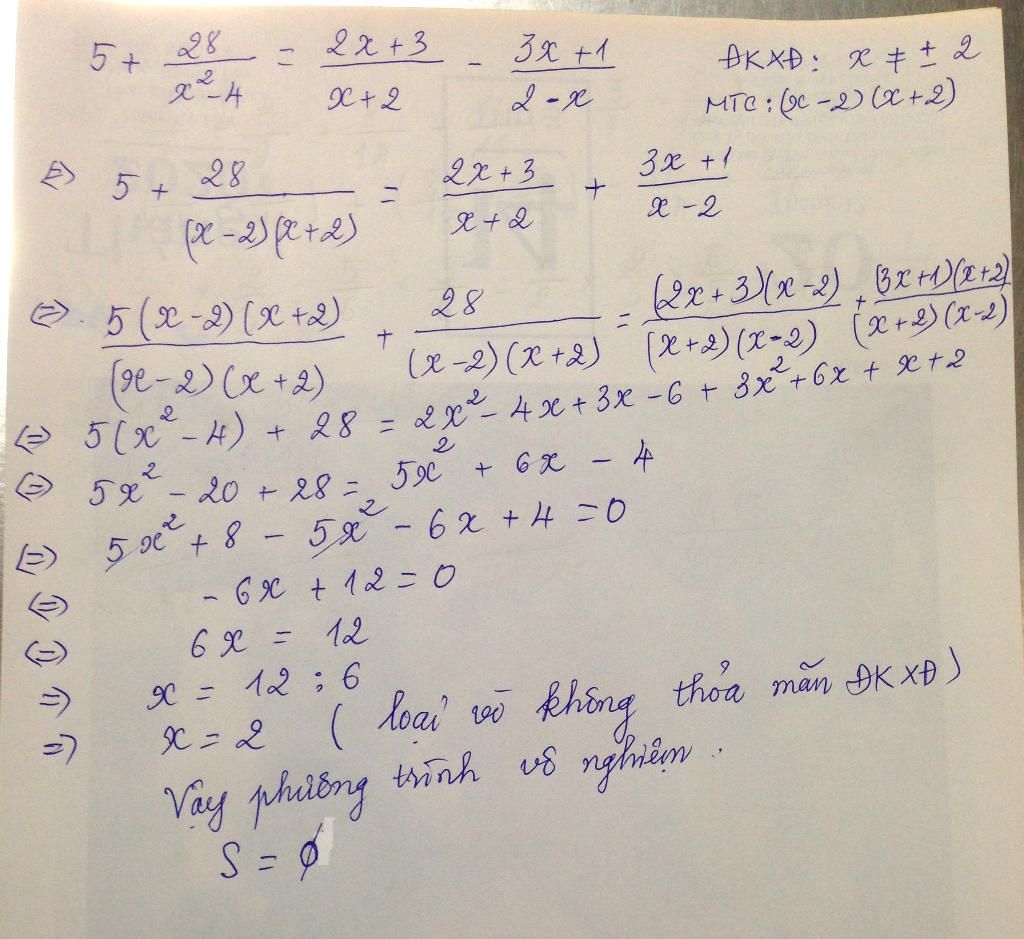 5 + 28/(x²-4) = (2x+3)/(x+2) - (3x+1)/(2-x) ĐKXĐ: x ≠ ± 2
MTC: (x-2)(x+2)
<=> 5 + 28/((x-2)(x+2)) = (2x+3)/(x+2) + (3x+1)/(x-2)
<=> 5(x-2)(x+2)/((x-2)(x+2)) + 28/((x-2)(x+2)) = (2x+3)(x-2)/((x+2)(x-2)) + (3x+1)(x+2)/((x+2)(x-2))
<=> 5(x²-4) + 28 = 2x² - 4x + 3x - 6 + 3x² + 6x + x + 2
<=> 5x² - 20 + 28 = 5x² + 6x - 4
<=> 5x² + 8 - 5x² - 6x + 4 = 0
<=> - 6x + 12 = 0
<=> 6x = 12
=> x = 12 : 6
=> x = 2 ( loại vì không thỏa mãn ĐKXĐ)
Vậy phương trình vô nghiệm.
S = ∅